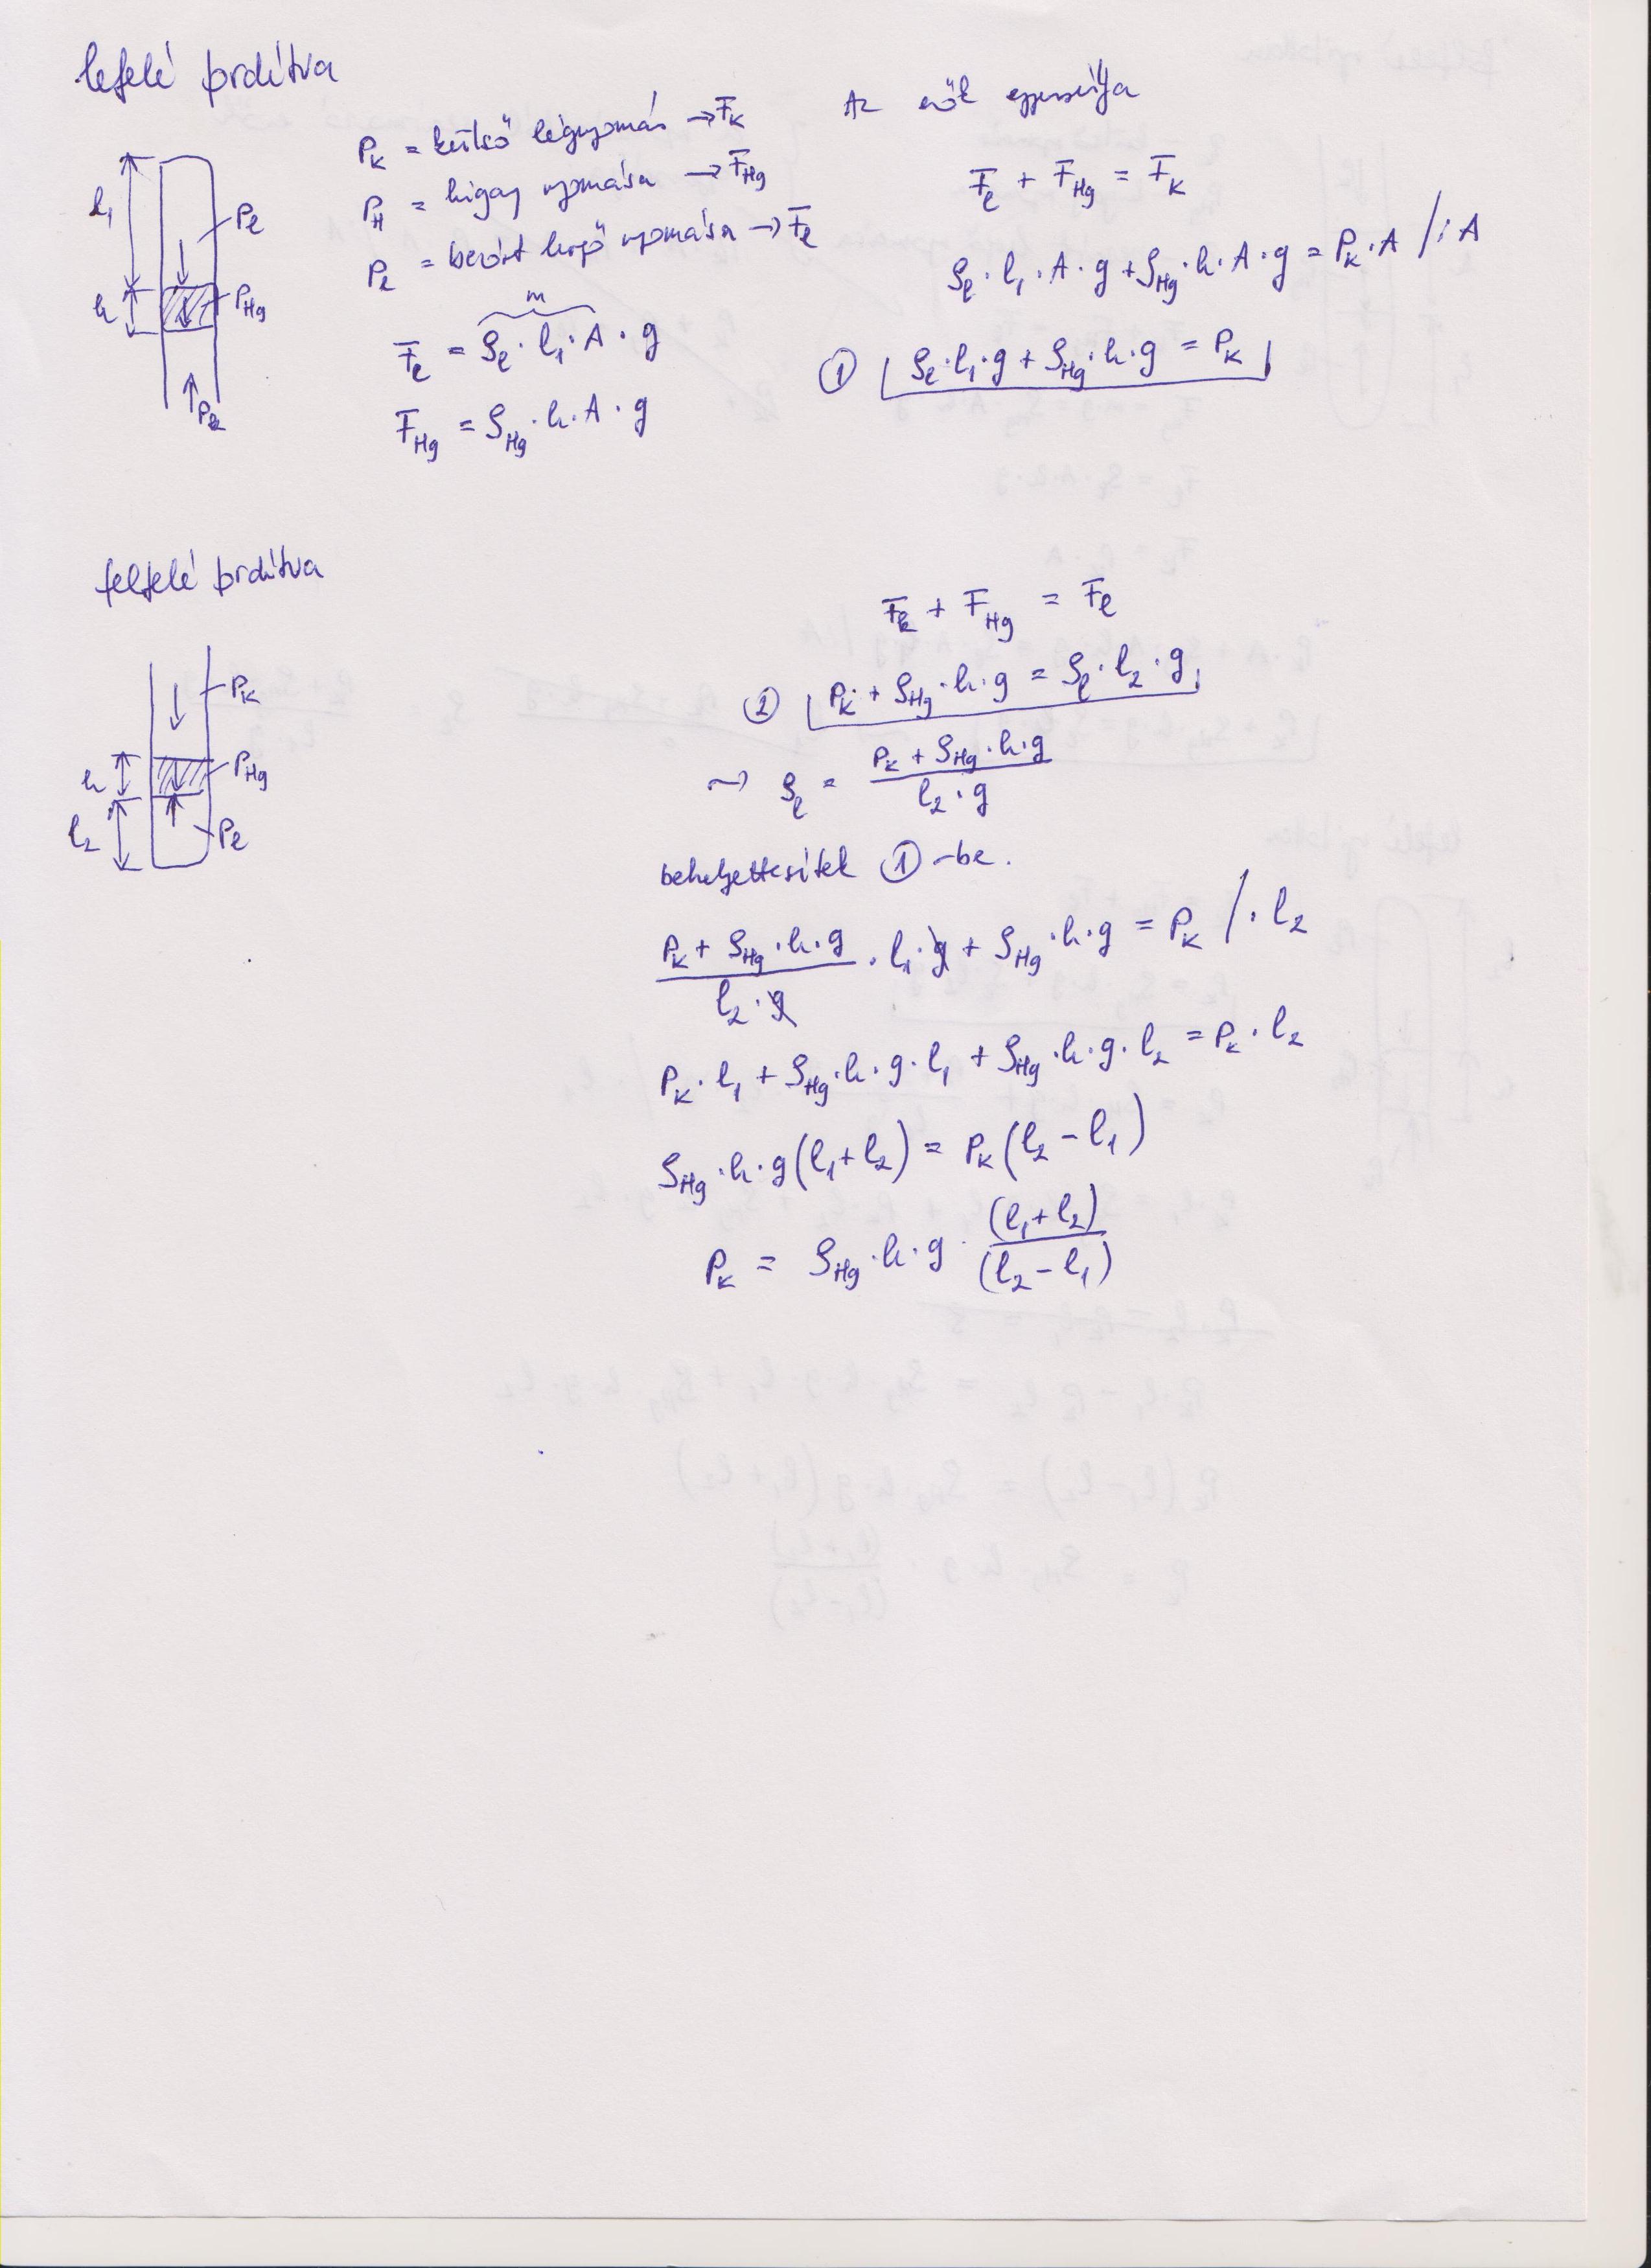 lefelé fordítva
P_K = külső légnyomás → F_K
P_H = higany nyomása → F_Hg
P_l = bezárt levegő nyomása → F_l
l_1
P_l
h
P_Hg
P_k
m
F_l = ρ_l · l_1 · A · g
F_Hg = ρ_Hg · h · A · g
Az erők egyensúlya
F_l + F_Hg = F_K
ρ_l · l_1 · A · g + ρ_Hg · h · A · g = P_K · A / : A
① ρ_l · l_1 · g + ρ_Hg · h · g = P_K
felfelé fordítva
P_K
h
P_Hg
l_2
P_l
F_k + F_Hg = F_l
② P_K + ρ_Hg · h · g = ρ_l · l_2 · g
→ ρ_l = (P_K + ρ_Hg · h · g) / (l_2 · g)
behelyettesítek ①-be.
(P_K + ρ_Hg · h · g) / (l_2 · g) · l_1 · g + ρ_Hg · h · g = P_K / · l_2
P_K · l_1 + ρ_Hg · h · g · l_1 + ρ_Hg · h · g · l_2 = P_K · l_2
ρ_Hg · h · g (l_1 + l_2) = P_K (l_2 - l_1)
P_K = ρ_Hg · h · g · (l_1 + l_2) / (l_2 - l_1)